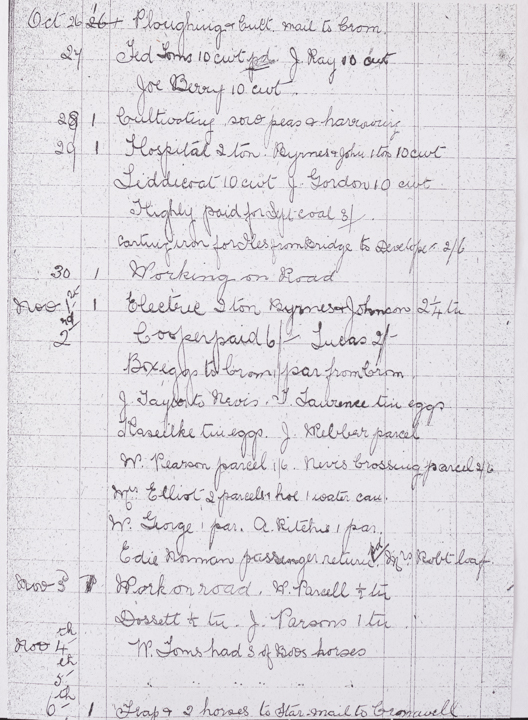 Oct 26 + Ploughing & Cult. mail to Crom.
27 Ted Toms 10 cwt pd J. Ray 10 cwt
Joe Berry 10 cwt
28 1 Cultivating sow peas & harrowing
29 1 Hospital 2 ton. Byrnes & John 1 ton 10 cwt
Liddicoat 10 cwt J. Gordon 10 cwt
Highly paid for coal 3/
Carting iron for from Bridge to 2/6
30 1 Working on Road
Nov 1st 1 Electric 2 ton Byrnes & Johnson 2 1/4 tn
2nd Cooper paid 6/- Lucas 2/-
Box eggs to Crom 1 par from Crom
J. Taylor to Nevis. T. Laurence tin eggs
tin eggs. J. Webber parcel
W. Pearson parcel 1/6. Nevis Crossing parcel 2/6
Mrs Elliot 2 parcels & hot water can.
W. George 1 par. A. Ritchie 1 par.
Edie Norman passenger return Mrs Robt loaf
Nov 3 1 Work on road. W. Parcell 1/2 tn
Dossett 1/2 tn. J. Parsons 1 tn
Nov 4th W. Toms had 3 of horses
5th " " "
6th 1 Trap & 2 horses to Star mail to Cromwell